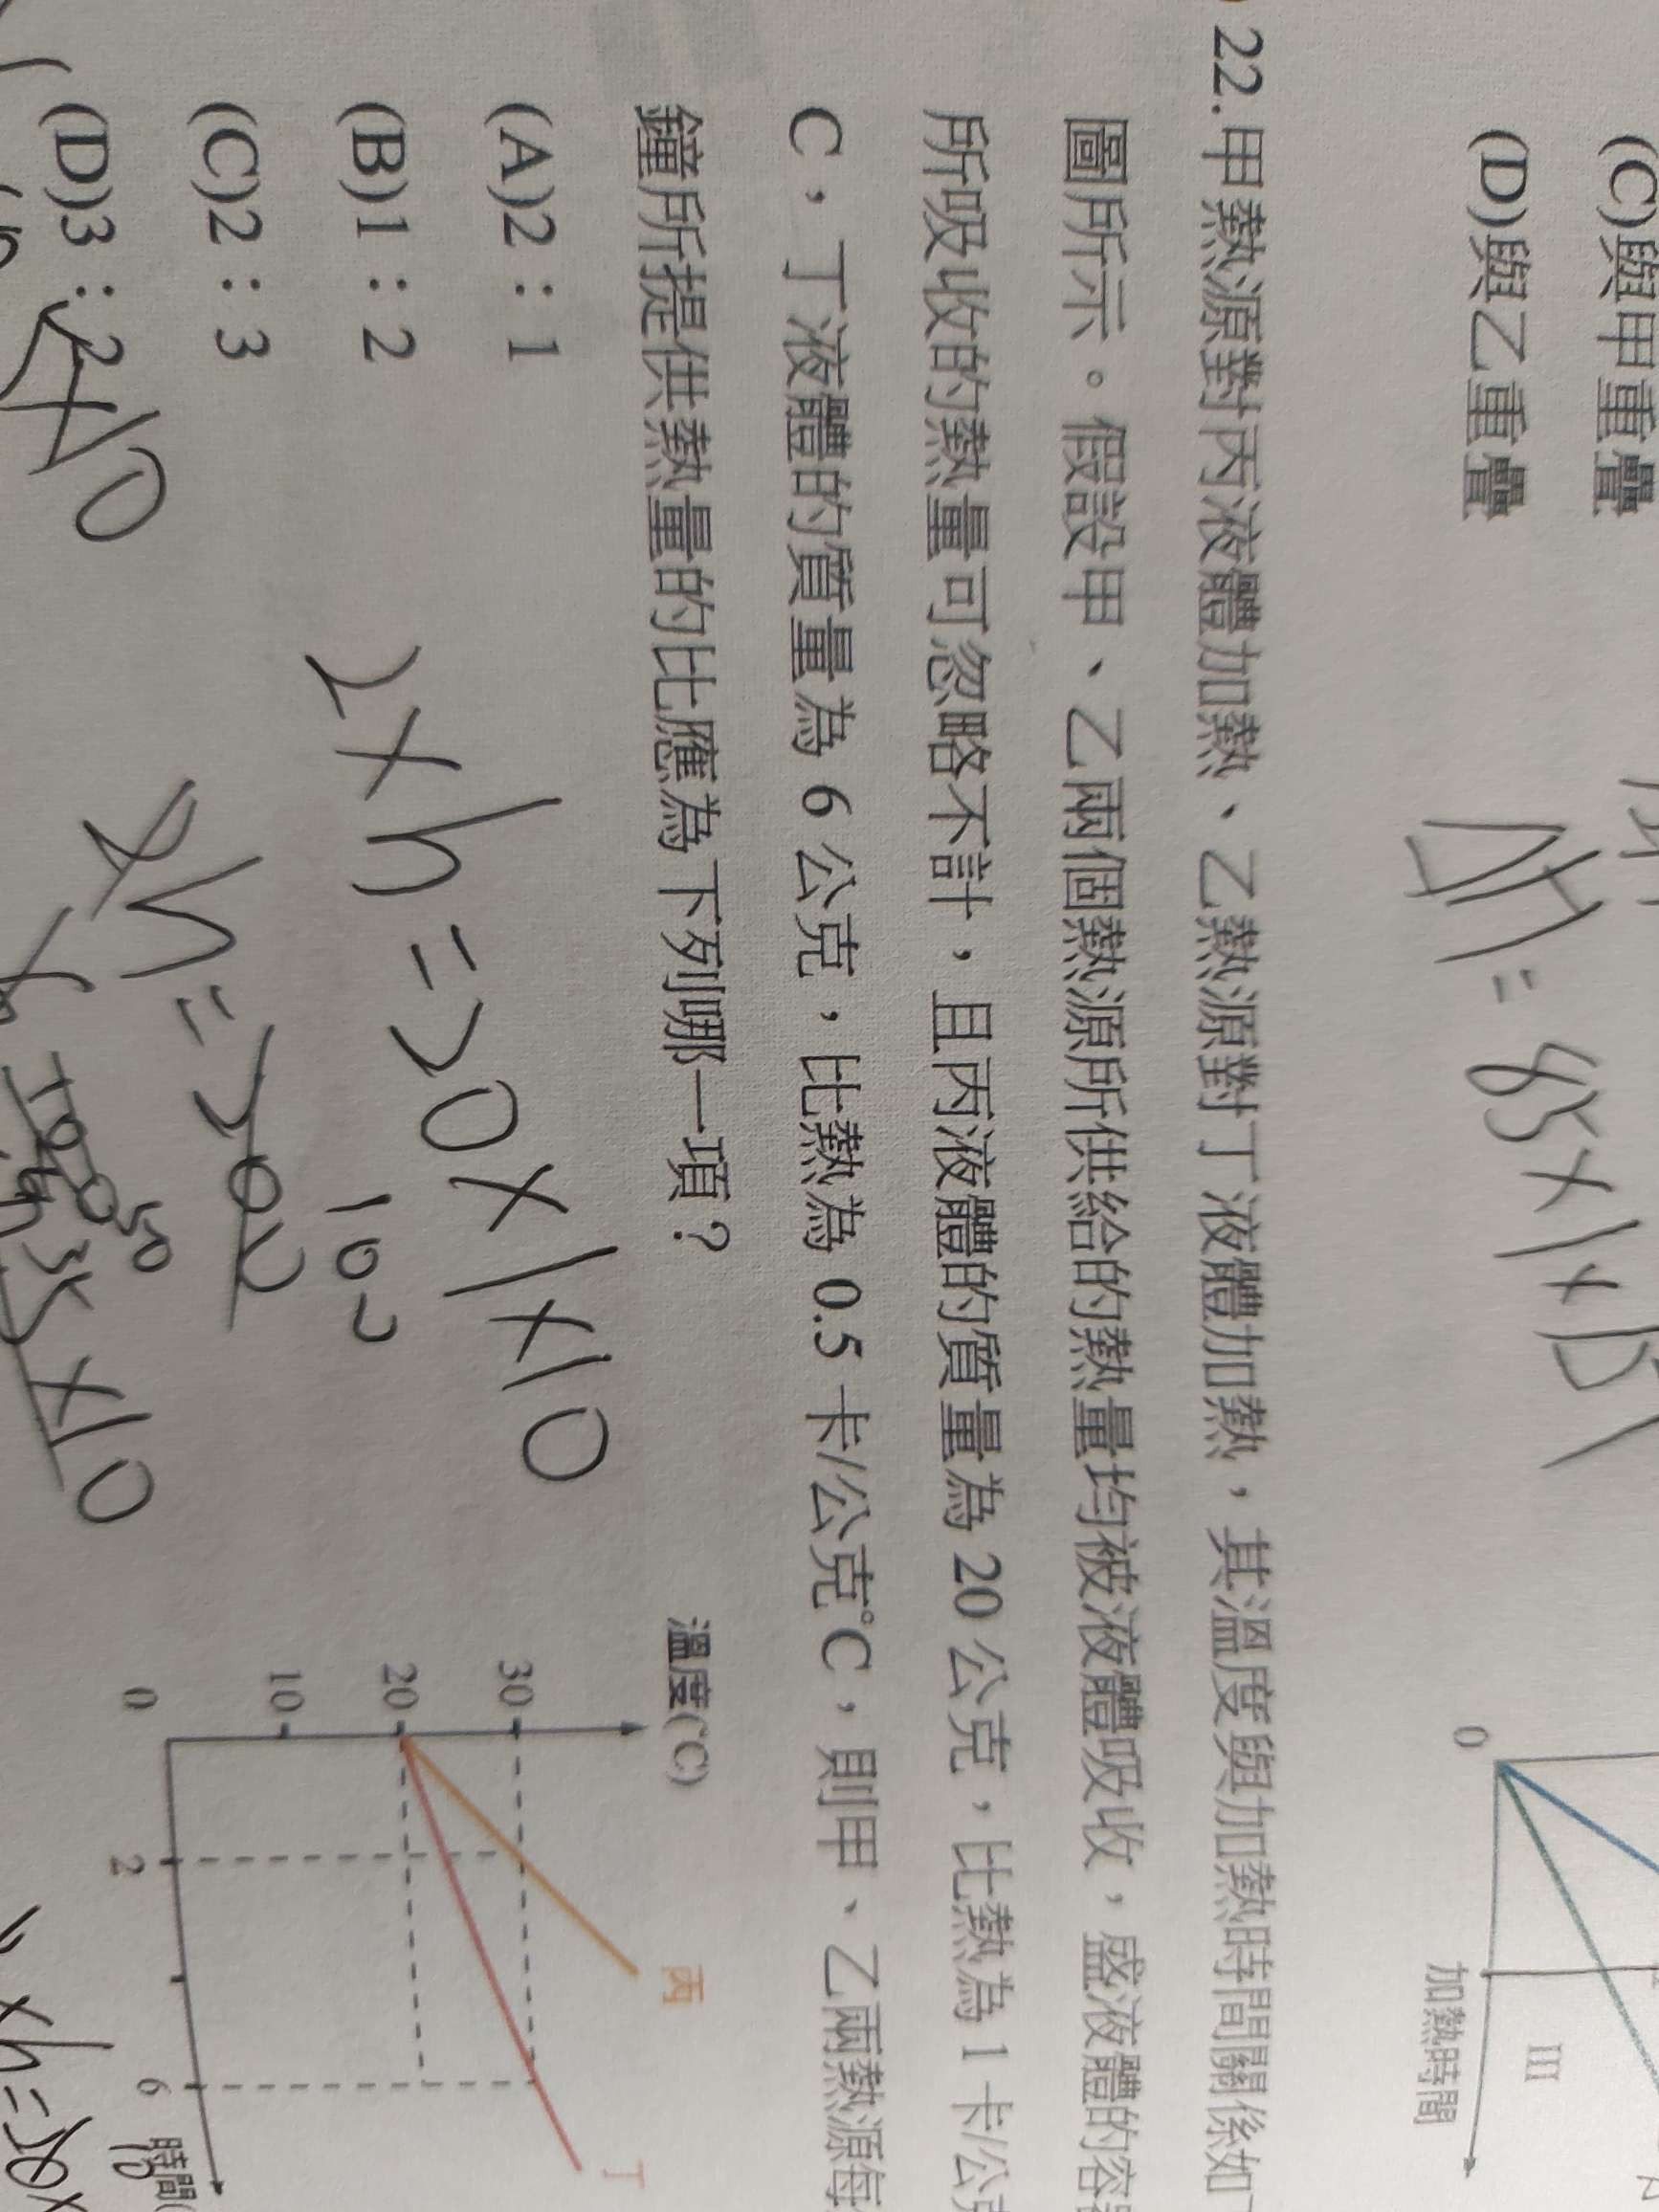 (C)與甲重疊
(D)與乙重疊
= 85×1×15
0
III
加熱時間
22.甲熱源對丙液體加熱、乙熱源對丁液體加熱，其溫度與加熱時間關係如
圖所示。假設甲、乙兩個熱源所供給的熱量均被液體吸收，盛液體的容
所吸收的熱量可忽略不計，且丙液體的質量為 20 公克，比熱為 1 卡/公
C，丁液體的質量為 6 公克，比熱為 0.5 卡/公克°C，則甲、乙兩熱源每
鐘所提供熱量的比應為下列哪一項？
(A)2：1
(B)1：2
(C)2：3
(D)3：2
×10
2×h=20×1×10
2h=200
100
50
×10
溫度(°C)
30
20
10
0
2
6
時間(
丙
丁
10